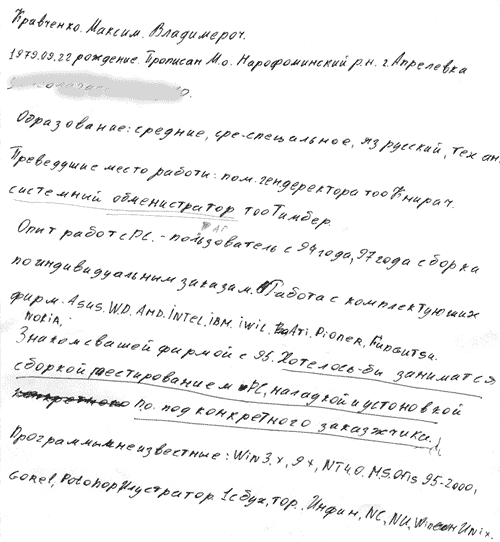 Кравченко. Максим. Владимероч.
1979.09.22 рождение. Прописан М.о. Нарофоминский р.н. г. Апрелевка
Образование: средние, сре-специальное, яз русский, тех ан.
Преведушие место работи: пом. гендеректора тоо Книрач.
системний обменистратор тоо Тимбер.
Опит работ с PC. - пользователь с 94 года, 97 года сборка
по индивидуальным заказам. Работа с комплектующих
фирм. Asus. WD. AMD. İNTEL. İBM. iWiL. ATi. Pioner, Fungutsu.
NOKiA,
Знаком с вашей фирмой с 95. Хотелось-би заниматся
сборкой тестированием PC, наладкой и устоновкой
П.О. под конкретного заказжчика.
Программы мне известные: Win 3.x, 9x, NT 4.0. M.S. Ofis 95-2000,
Gorel, Potohop Илустратор. 1с бух, тор. Инфин, NC, NU, Wincom Unix.